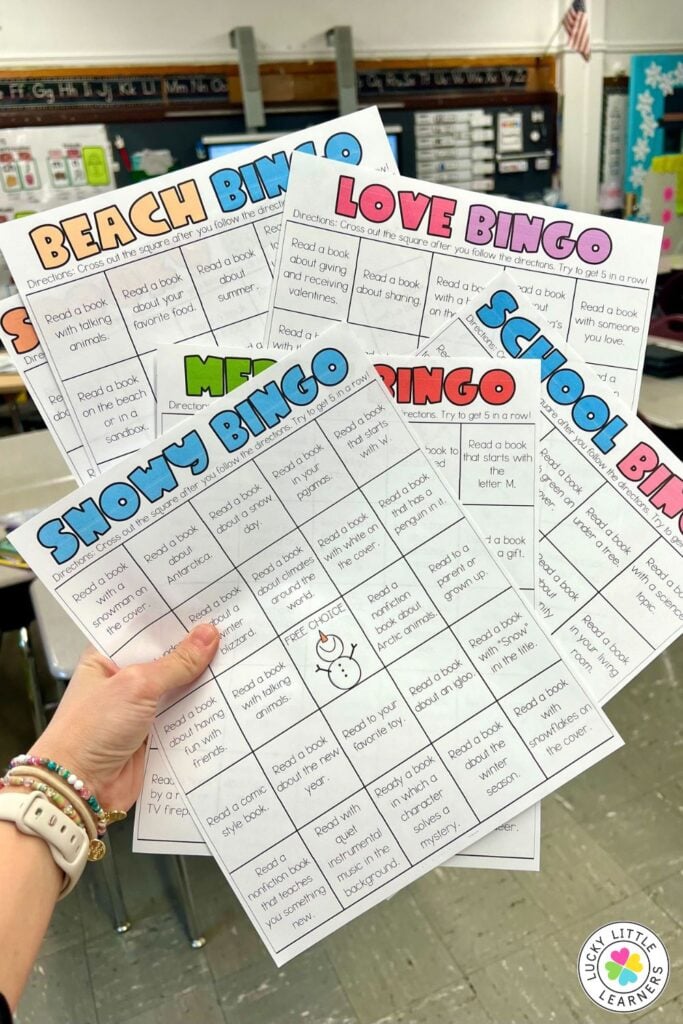 Ff Gg Hh Ii Jj Kk Ll Mm Nn
BEACH BINGO
Directions: Cross out the square after you follow the directions.
Read a book
with talking
animals.
Read a book
about your
favorite food.
Read a book
about
summer.
Read a book
on the beach
or in a
sandbox.
LOVE BINGO
Directions: Cross out the square after you follow the directions. Try to get 5 in a row!
Read a book
about giving
and receiving
valentines.
Read a book
about sharing.
Read a book
with a
on the
Read a book
with someone
you love.
SCHOOL BINGO
Read a book
under a tree.
Read a book
with a science
topic.
Read a book
in your living
room.
MER
BINGO
Directions
directions. Try to get 5 in a row!
Read a book
that starts with
the
letter M.
a gift.
SNOWY BINGO
Directions: Cross out the square after you follow the directions. Try to get 5 in a row!
Read a book
with a
snowman on
the cover.
Read a book
about
Antarctica.
Read a book
about a snow
day.
Read a book
in your
pajamas.
Read a book
that starts
with W.
Read a book
about a
winter
blizzard.
Read a book
about climates
around the
world.
Read a book
with white on
the cover.
Read a book
that has a
penguin in it.
Read a book
about having
fun with
friends.
Read a book
with talking
animals.
FREE CHOICE
Read a
nonfiction
book about
Arctic animals.
Read to a
parent or
grown up.
Read a comic
style book.
Read a book
about the new
year.
Read to your
favorite toy.
Read a book
about an igloo.
Read a book
with "Snow"
ini the title.
Read a
nonfiction book
that teaches
you something
new.
Read with
quiet
instrumental
music in the
background.
Ready a book
in which a
character
solves a
mystery.
Read a book
about the
winter
season.
Read a book
with
snowflakes on
the cover.
by a
TV firep
LUCKY LITTLE
LEARNERS